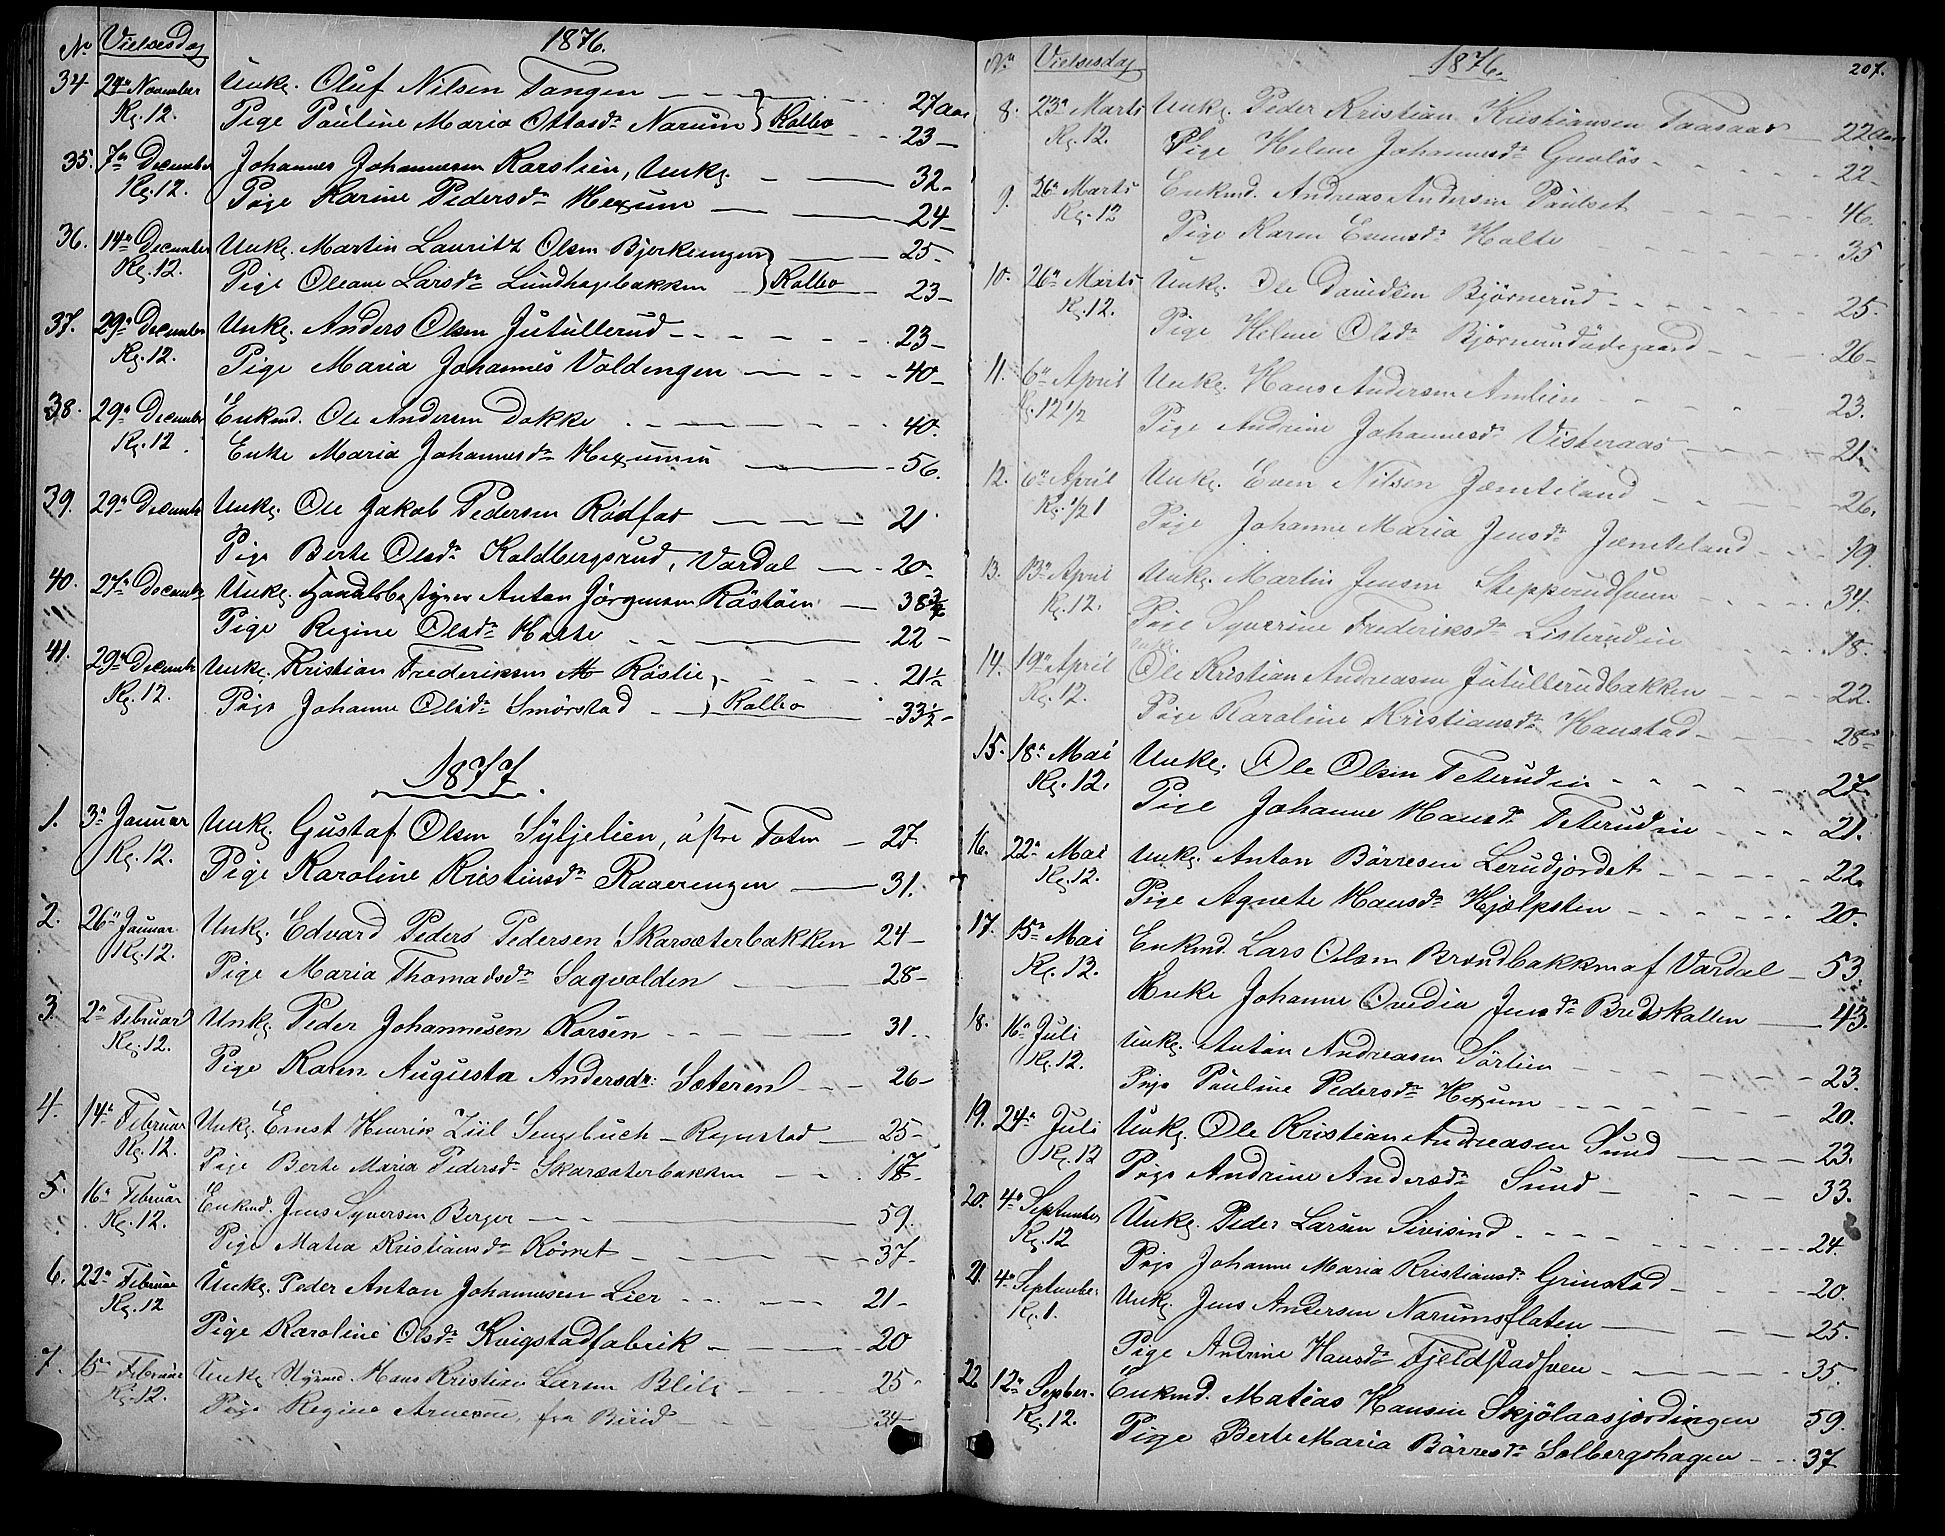 No Vielsesdag 1876.
34. 24de November Unkg. Oluf Nilsen Tangen 27 Aar
Kl. 12. Pige Pauline Maria Ottosdr Narum Kolbo 23
35. 7de December Johannes Johannesen Karslien, Unkg. 32
Kl. 12. Pige Karine Pedersdr Hexum 24
36. 14de December Unkg. Martin Lauritz Olsen Bjerkeengen 25
Kl. 12. Pige Oleane Larsdr Lundhagebakken Kolbo 23
37. 29de December Unkg. Anders Olsen Jutullerud 23
Kl. 12. Pige Maria Johannes Voldengen 40
38. 29de December Enkmd. Ole Andersen Dokke 40.
Kl. 12 Enke Maria Johannesdr Hexumm 56.
39. 29de Decemb Unkg. Ole Jakob Pedersen Rødfos 21
Pige Berte Olsdr Koldbergsrud, Vardal 20
40. 27de Decemb Unkg. Handelsbestyrer Anton Jörgensen Röstöen 38 3/4
Pige Regine Olsdr Halte 22
41. 29de Decemb Unkg. Kristian Frederiksen Röslie 21 1/2
Kl. 12. Pige Johanne Olsdr Smörstad Kolbo 33 1/2
1877.
1. 3de Januar Unkg. Gustaf Olsen Syljelien, östre Toten 27.
Kl. 12. Pige Karoline Kristiansdr Raaerengen 31.
2. 26de Januar Unkg. Edvard Peders Pedersen Skarsæterbakken 24
Kl. 12. Pige Maria Thomasdr Sagvolden 28
3. 2de Februar Unkg. Peder Johannesen Korsen 31
Kl. 12. Pige Karen Augusta Andersdr. Sæteren 26
4. 14de Februar Unkg. Ernst Henrik Ziil Sengebuch Rognstad 25
Kl. 12. Pige Berte Maria Pedersdr Skarsæterbakken 17
5. 16de Februar Enkmd. Jens Syversen Berger 59.
Kl. 12. Pige Matea Kristiansdr Körret 37
6. 22de Februar Unkg. Peder Anton Johannesen Lier 21
Kl. 12 Pige Karoline Olsdr Knigstadfabrik 20
7. 15de Februar Unkg. Hans Kristian Larsen Blili 25
Kl. 12. Pige Regine Arnesen, fra Birid 34
No Vielsesdag 1876. 207.
8. 23de Marts Unkg. Peder Kristian Kristiansen Taasaas 22 Aar
Kl. 12. Pige Helene Johannesdr Gunlös 22
9. 26de Marts Enkmd. Andreas Andersen Paulset 46.
Kl. 12 Pige Karen Evensdr Halte 35
10. 26de Marts Unkg. Ole Davidsen Bjørnerud 25.
Kl. 12. Pige Helene Olsdr Bjørnerudødegaard 26
11. 6te April Unkg. Hans Andersen Amlien 23.
Kl. 12 1/2 Pige Andrine Johannesdr Visteraas 21
12. 6te April Unkg. Even Nilsen Jæmteland 26.
Kl. 1/2 1 Pige Johanne Maria Jensdr Jæmteland 19.
13. 13de April Unkg. Martin Jensen Stepperudsveen 34.
Kl. 12. Pige Syverine Frederiksdr Listerudeie 18.
14. 19de April Unkg. Ole Kristian Andreasen Jutullerudbakken 22.
Kl. 12. Pige Karoline Kristiansdr Hanstad 28
15. 18de Mai Unkg. Ole Olsen Teterudeie 27.
Kl. 12. Pige Johanne Hansdr Teterudeie 21.
16. 22de Mai Unkg. Anton Börresen Lerudjordet 22.
Kl. 12. Pige Agnete Hansdr Hjælpsten 20.
17. 15de Mai Enkmd. Lars Olsen Brændbakken af Vardal 53.
Kl. 12. Enke Johanne Ovedia Jensdr Bredskallen 43.
18. 16de Juli Unkg. Anton Andreasen Sörlien 23.
Kl. 12. Pige Pauline Pedersdr Hexum 20.
19. 24de Juli Unkg. Ole Kristian Andreasen Sund 23.
Kl. 12 Pige Andrine Andersdr Sund 33.
20. 4de September Unkg. Peder Larsen Sivisind 24.
Kl. 12 Pige Johanne Maria Kristiansdr Grinstad 20.
21. 4de September Unkg. Jens Andersen Narumsflaten 25.
Kl. 1. Pige Andrine Hansdr Fjeldstadsveen 35.
22 12te Septber. Enkmd. Matias Hansen Skjölaasjordingen 59.
Kl. 12. Pige Berte Maria Börresdr Solbergshagen 37